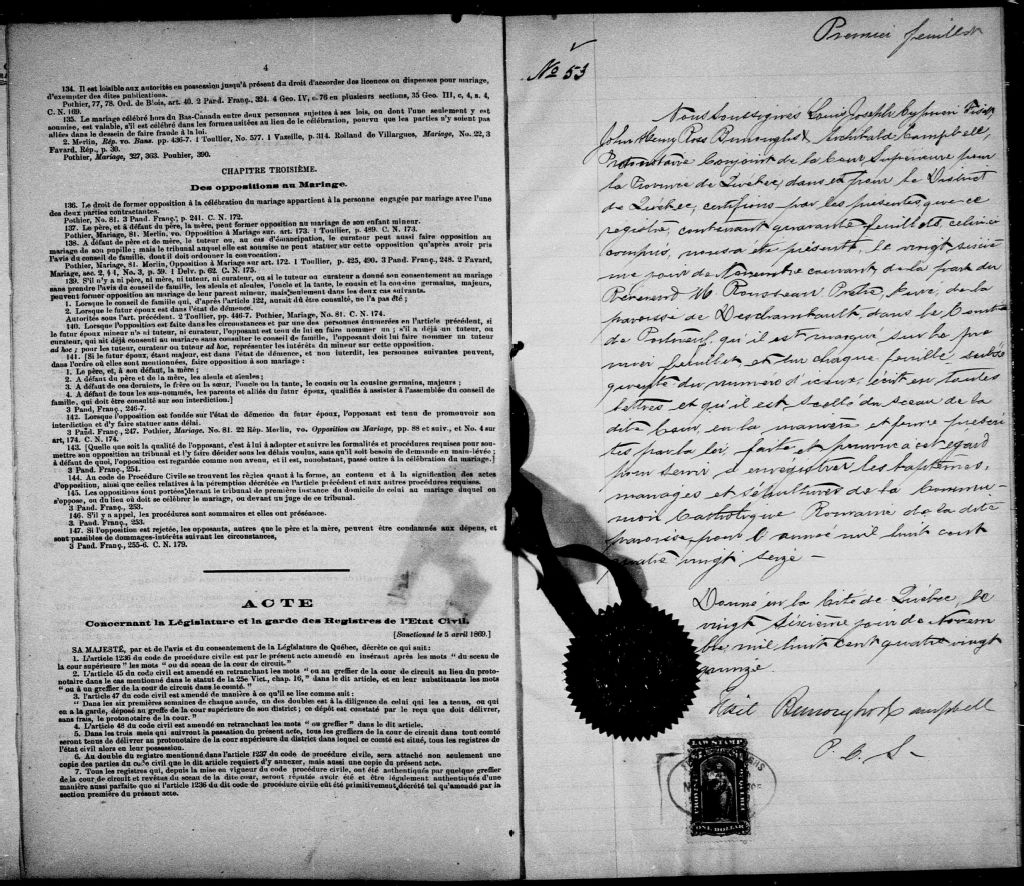 4
134. Il est loisible aux autorités en possession jusqu'à présent du droit d'accorder des licences ou dispenses pour mariage,
d'exempter des dites publications.
Pothier, 77, 78. Ord. de Blois, art. 40. 2 Pand. Franç., 324. 4 Geo. IV, c. 76 en plusieurs sections, 35 Geo. III, c, 4, s. 4,
C. N. 169.
135. Le mariage célébré hors du Bas-Canada entre deux personnes sujettes à ses lois, ou dont l'une seulement y est
soumise, est valable, s'il est célébré dans les formes usitées au lieu de la célébration, pourvu que les parties n'y soient pas
allées dans le dessein de faire fraude à la loi.
2. Merlin, Rép. vo. Bans. pp. 436-7. 1 Toullier, No. 577. 1 Vazeille, p. 314. Rolland de Villargues, Mariage, No. 22, 3
Favard, Rép., p. 30.
Pothier, Mariage, 327, 363. Pouhier, 390.
CHAPITRE TROISIÈME.
Des oppositions au Mariage.
136. Le droit de former opposition à la célébration du mariage appartient à la personne engagée par mariage avec l'une
des deux parties contractantes.
Pothier, No. 81. 3 Pand. Franç.; p. 241. C. N. 172.
137. Le père, et à défaut du père, la mère, peut former opposition au mariage de son enfant mineur.
Pothier, Mariage, 81. Merlin, vo. Opposition à Mariage sur. art. 173. 1 Toullier, p. 489. C. N. 173.
138. A défaut de père et de mère, le tuteur ou, au cas d'émancipation, le curateur peut aussi faire opposition au
mariage de son pupille; mais le tribunal auquel elle est soumise ne peut statuer sur cette opposition qu'après avoir pris
l'avis du conseil de famille, dont il doit ordonner la convocation.
Pothier, Mariage, 81. Merlin, Opposition à Mariage sur art. 172. 1 Toullier, p. 425, 490. 3 Pand. Franç., 248. 2 Favard,
Mariage, sec. 2, § 4, No. 3, p. 59. 1 Delv. p. 62. C. N. 175.
139. S'il n'y a ni père, ni mère, ni tuteur, ni curateur, ou si le tuteur ou curateur a donné son consentement au mariage
sans prendre l'avis du conseil de famille, les aïeuls et aïeules, l'oncle et la tante, le cousin et la cousine germains, majeurs,
peuvent former opposition au mariage de leur parent mineur, mais seulement dans les deux cas suivants.
1. Lorsque le conseil de famille qui, d'après l'article 122, aurait dû être consulté, ne l'a pas été;
2. Lorsque le futur époux est dans l'état de démence.
Autorités sous l'art. précédent. 2 Toullier, pp. 446-7. Pothier, Mariage, No. 81. C. N. 174.
140. Lorsque l'opposition est faite dans les circonstances et par une des personnes énumérées en l'article précédent, si
le futur époux mineur n'a ni tuteur, ni curateur, l'opposant est tenu de lui en faire nommer un; s'il a déjà un tuteur, ou
curateur, qui ait déjà consenti au mariage sans consulter le conseil de famille, l'opposant doit lui faire nommer un tuteur
ad hoc; pour les tuteur, curateur ou tuteur ad hoc, représenter les intérêts du mineur sur cette opposition.
141. [Si le futur époux, étant majeur, est dans l'état de démence, et non interdit, les personnes suivantes peuvent,
dans l'ordre où elles sont mentionnées, faire opposition à son mariage:
1. Le père, et, à son défaut, la mère;
2. A défaut du père et de la mère, les aïeuls et aïeules;
3. A défaut de ces derniers, le frère ou la sœur, l'oncle ou la tante, le cousin ou la cousine germains, majeurs;
4. A défaut de tous les sus-nommés, les parents et alliés du futur époux, qualifiés à assister à l'assemblée du conseil de
famille, qui doit être consulté sur son interdiction.]
3 Pand, Franç., 246-7.
142. Lorsque l'opposition est fondée sur l'état de démence du futur époux, l'opposant est tenu de promouvoir son
interdiction et d'y faire statuer sans délai.
3 Pand, Franç., 247. Pothier, Mariage. No. 81. 22 Rép. Merlin, vo. Opposition au Mariage, pp. 88 et suiv., et No. 4 sur
art, 174. C. N. 174.
143. [Quelle que soit la qualité de l'opposant, c'est à lui à adopter et suivre les formalités et procédures requises pour sou-
mettre son opposition au tribunal et l'y faire décider sous les délais voulus, sans qu'il soit besoin de demande en main-levée;
à défaut de quoi, l'opposition est regardée comme non avenu, et il est, nonobstant, passé outre à la célébration du mariage.]
3 Pand. Franç., 254.
144. Au code de Procédure Civile se trouvent les règles quant à la forme, au contenu et à la signification des actes
d'opposition, ainsi que celles relatives à la péremption décrétée en l'article précédent et aux autres procédures requises.
145. Les oppositions sont portées devant le tribunal de première instance du domicile de celui au mariage duquel on
s'oppose, ou du lieu où doit se célébrer le mariage, ou devant un juge de ce tribunal.
3 Pand. Franç., 253.
146. S'il y a appel, les procédures sont sommaires et elles ont préséance.
3. Pand. Franç., 253.
147. Si l'opposition est rejetée, les opposants, autres que le père et la mère, peuvent être condamnés aux dépens, et
sont passibles de dommages-intérêts suivant les circonstances,
3 Pand. Franç., 255-6. C. N. 179.
ACTE
Concernant la Législature et la garde des Registres de l'Etat Civil.
[Sanctionné le 5 avril 1869.]
SA MAJESTÉ, par et de l'avis et du consentement de la Législature de Québec, décrète ce qui suit:
1. L'article 1236 du code de procédure civile est par le présent acte amendé en insérant après les mots "du sceau de
la cour supérieure" les mots "ou du sceau de la cour de circuit."
2. L'article 45 du code civil est amendé en retranchant les mots "ou au greffier de la cour de circuit au lieu du proto-
notaire dans le cas mentionné dans le statut de la 25e Vict., chap. 16," dans le dit article, et en leur substituants les mots
"ou à un greffier de la cour de circuit dans le comté."
3. L'article 47 du code civil est amendé de manière à ce qu'il se lise comme suit:
"Dans les six premières semaines de chaque année, un des doubles est à la diligence de celui qui les a tenus, ou qui
en a la garde, déposé au greffe de la cour supérieure de son district; ce dépôt est constaté par le reçu que doit délivrer,
sans frais, le protonotaire de la cour."
4. L'article 48 du code civil est amendé en retranchant les mots "ou greffier" dans le dit article.
5. Dans les trois mois qui suivront la passation du présent acte, tous les greffiers de la cour de circuit dans tout comté
seront tenus de délivrer au protonotaire de la cour supérieure du district dans lequel ce comté est situé, tous les registres de
l'état civil alors en leur possession.
6. Au double du registre mentionné dans l'article 1237 du code de procédure civile, sera attaché non seulement une
copie des parties du code civil que le dit article requiert d'y annexer, mais aussi une copie du présent acte.
7. Tous les registres qui, depuis la mise en vigueur du code de procédure civile, ont été authentiqués par quelque greffier
de la cour de circuit et revêtus du sceau de la dite cour, seront réputés avoir été et être légalement authentiqués d'une
manière aussi parfaite que si l'article 1236 du dit code de procédure civile eût été primitivement décrété tel qu'amendé par la
section première du présent acte.
Premier feuillet
No 53
Nous soussignés Louis Joseph Cyprien Fiset
John Henry Ross Burroughs & Archibald Campbell,
Protonotaire Conjoint de la Cour Supérieure pour
la Province de Québec, dans et pour le District
de Québec, certifions par les présentes que ce
registre, contenant quarante feuillets celui-ci
compris, nous a été présenté le vingt sixiè
me jour de Novembre courant de la part du
Révérend M Rousseau Prêtre, Curé, de la
paroisse de Deschambault, dans le Comté
de Portneuf, qu'il est marqué sur le pre
mier feuillet et sur chaque feuillet subsé
quent du numéro d'iceux, écrit en toutes
lettres et qu'il est scellé du sceau de la
dite Cour, en la manière et forme prescri
tes par la loi, faite et pourvue à cet égard
pour servir à enregistrer les baptêmes,
mariages et sépultures de la Commu-
nion Catholique Romaine de la dite
paroisse, pour l'année mil huit cent
quatre vingt seize -
Donné en la Cité de Québec, le
vingt sixième jour de Novem
bre, mil huit cent quatre vingt
quinze.
Fiset Burroughs & Campbell
P. C. S.
LAW STAMP
ONE DOLLAR